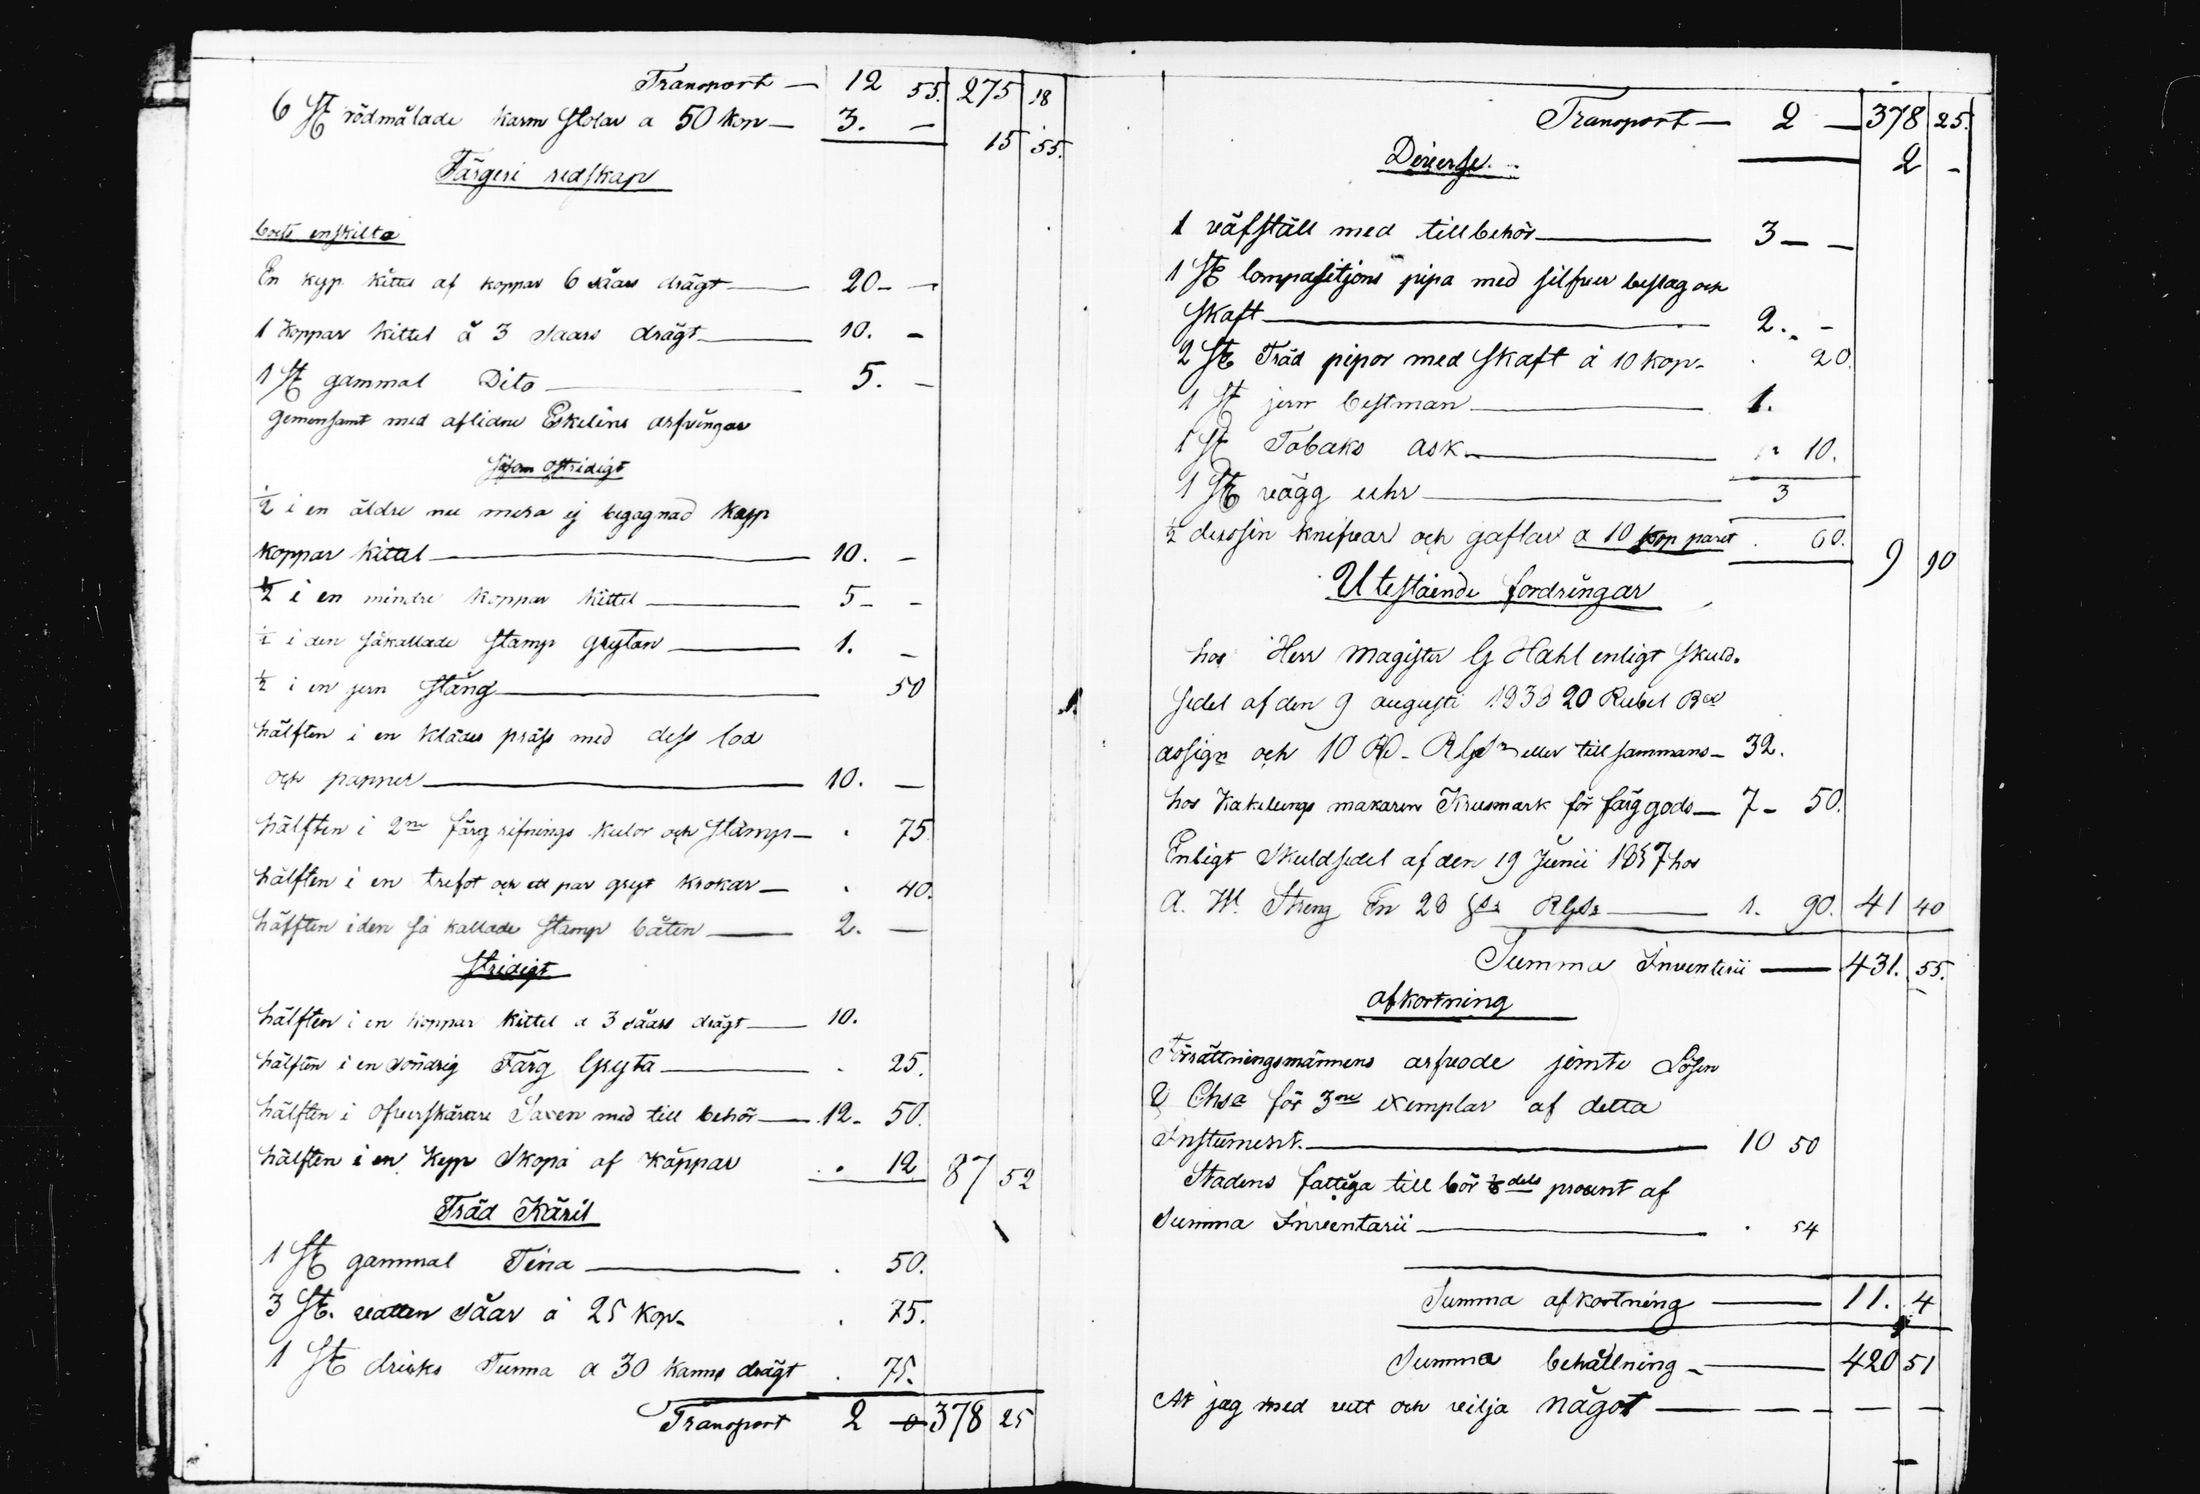 Transport — 12 55. 275 18
6 St rödmålade karm stolar a 50 kop — 3. — 15 55.
Färgeri redskap
boets enskilta
En kyp kittel af koppar 6 såars drägt — 20 — —
1 koppar kittel á 3 saars drägt — 10. —
1 St gammal Dito — 5. —
gemensamt med aflidne Eskelins arfvingar
såsom ostridigt
½ i en äldre nu mera ej begagnad kypp
koppar kittel — 10. —
½ i en mindre koppar kittel — 5 — —
½ i den såkallade stamp grytan — 1. —
½ i en jern stång — 50
hälften i en klädes präss med dess lod
och papper — 10. —
hälften i 2ne färg rifnings kulor och stamp — . 75
hälften i en trefot och ett par gryt krokar — . 40.
hälften iden så kallade stamp båten — 2. —
stridigt
hälften i en koppar kittel a 3 såars drägt — 10.
hälften i en söndrig Färg Gryta — . 25.
hälften i öfverskärare Saxen med till behör — 12 - 50.
hälften i en Kyp Skopa af Koppar . . 12 87 52
Träd Käril
1 St gammal Tina — . 50.
3 St. vatten såar á 25 kop - . 75.
1 St dricks Tunna a 30 kanns drägt . 75.
Transport 2 0 378 25
Transport — 2 — 378 25.
Diverse. 2 -
1 väfställ med tillbehör — 3 — —
1 St Compositjons pipa med silfver beslag och
skaft — 2. -
2 St Träd pipor med skaft á 10 kop - . 20.
1 St jern bestman — 1.
1 St Tobaks ask — 10.
1 St vägg uhr — 3
½ dussin knifvar och gaflar a 10 kop paret . 60. 9 90
Utestående fordringar
hos Herr Magister G Hahl enligt skuld-
sedel af den 9 augusti 1833 20 Rubel Bco
assign och 10 Rd - Rgs eller tillsammans — 32.
hos Kakelungs makaren Krusmark för färggods — 7 - 50.
Enligt Skuldsedel af den 19 Junii 1857 hos
A. W. Streng En 28 Rgs — 1. 90. 41 40
Summa Inventerii — 431. 55.
afkortning
Förrättningsmännens arfvode jemte Lösen
& Chsa för 3ne exemplar af detta
Instument. — 10 50
Stadens fattiga till bör ⅛dels procent af
Summa Inventarii — . 54
Summa afkortning — 11. 4
Summa behållning — 420 51
At jag med vett och vilja något — — — — —